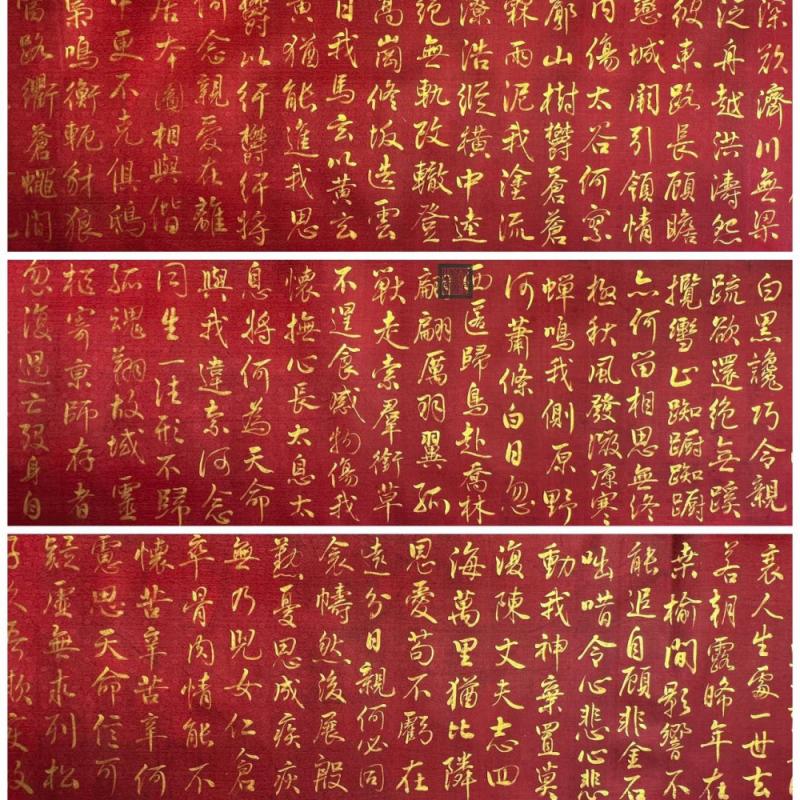 深欲濟川無梁
泛舟越洪濤怨
彼東路長顧瞻
戀城闕引領情
內傷太谷何寥
廓山樹鬱蒼蒼
霖雨泥我塗流
潦浩縱橫中逵
絕無軌改轍登
高崗修坂造雲
日我馬玄以黃玄
黃猶能進我思
鬱以紆鬱紆將
何念親愛在離
居本圖相與偕
中更不克俱鴟
梟鳴衡軛豺狼
當路衢蒼蠅間
白黑讒巧令親
疏欲還絕無蹊
攬轡止踟躕踟躕
亦何留相思無終
極秋風發微凉寒
蟬鳴我側原野
何蕭條白日忽
西匿歸鳥赴喬林
翩翩厲羽翼孤
獸走索羣銜草
不遑食感物傷我
懷撫心長太息太
息將何為天命
與我違奈何念
同生一往形不歸
孤魂翔故域靈
柩寄京師存者
忽復過亡歿身自
衰人生處一世去
若朝露晞年在
桑榆間影響不
能追自顧非金石
咄唶令心悲心悲
動我神棄置莫
復陳丈夫志四
海萬里猶比隣
恩愛苟不虧在
遠分日親何必同
衾幬然後展殷
懃憂思成疾疢
無乃兒女仁倉
卒骨肉情能不
懷苦辛苦辛何
慮思天命信可
疑虛無求列松
子久吾欺變故